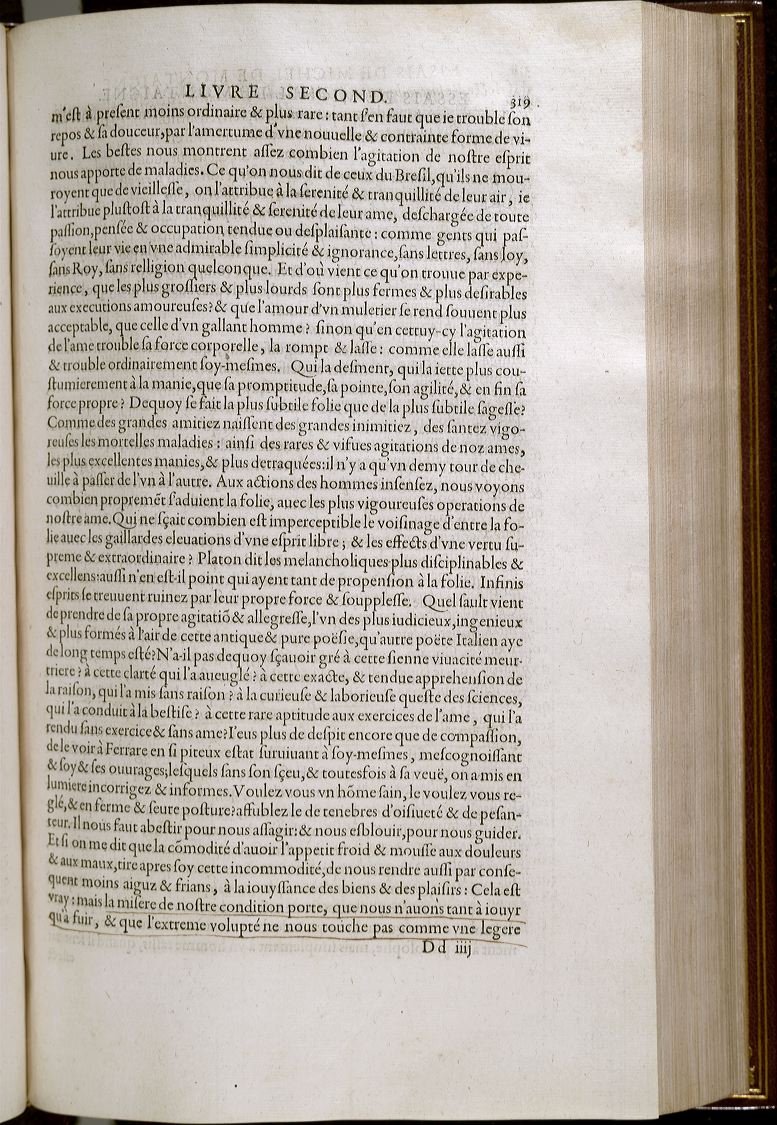 LIVRE SECOND. 319
m'eſt à preſent moins ordinaire & plus rare : tant s'en faut que ie trouble ſon
repos & ſa douceur, par l'amertume d'vne nouuelle & contrainte forme de vi-
ure. Les beſtes nous montrent aſſez combien l'agitation de noſtre eſprit
nous apporte de maladies. Ce qu'on nous dit de ceux du Breſil, qu'ils ne mou-
royent que de vieilleſſe, on l'attribue à la ſerenité & tranquillité de leur air, ie
l'attribue pluſtoſt à la tranquillité & ſerenité de leur ame, deſchargée de toute
paſſion, penſée & occupation tendue ou deſplaiſante : comme gents qui paſ-
ſoyent leur vie en vne admirable ſimplicité & ignorance, ſans lettres, ſans loy,
ſans Roy, ſans relligion quelconque. Et d'où vient ce qu'on trouue par expe-
rience, que les plus groſſiers & plus lourds ſont plus fermes & plus deſirables
aux executions amoureuſes? & que l'amour d'vn muletier ſe rend ſouuent plus
acceptable, que celle d'vn gallant homme ? ſinon qu'en cettuy-cy l'agitation
de l'ame trouble ſa force corporelle, la rompt & laſſe : comme elle laſſe auſſi
& trouble ordinairement ſoy-meſmes. Qui la deſment, qui la iette plus cou-
ſtumierement à la manie, que ſa promptitude, ſa pointe, ſon agilité, & en fin ſa
force propre ? Dequoy ſe fait la plus ſubtile folie que de la plus ſubtile ſageſſe?
Comme des grandes amitiez naiſſent des grandes inimitiez, des ſantez vigo-
reuſes les mortelles maladies : ainſi des rares & vifues agitations de noz ames,
les plus excellentes manies, & plus detraquées: il n'y a qu'vn demy tour de che-
uille à paſſer de l'vn à l'autre. Aux actions des hommes inſenſez, nous voyons
combien propremẽt s'aduient la folie, auec les plus vigoureuſes operations de
noſtre ame. Qui ne ſçait combien eſt imperceptible le voiſinage d'entre la fo-
lie auec les gaillardes eleuations d'vne eſprit libre ; & les effects d'vne vertu ſu-
preme & extraordinaire ? Platon dit les melancholiques plus diſciplinables &
excellens: auſſi n'en eſt-il point qui ayent tant de propenſion à la folie. Infinis
eſprits ſe treuuent ruinez par leur propre force & ſoupplesſe. Quel ſault vient
de prendre de ſa propre agitatiõ & allegreſſe, l'vn des plus iudicieux, ingenieux
& plus formés à l'air de cette antique & pure poëſie, qu'autre poëte Italien aye
de long temps eſté? N'a-il pas dequoy ſçauoir gré à cette ſienne viuacité meur-
triere ? à cette clarté qui l'a aueuglé ? à cette exacte, & tendue apprehenſion de
la raiſon, qui l'a mis ſans raiſon ? à la curieuſe & laborieuſe queſte des ſciences,
qui l'a conduit à la beſtiſe ? à cette rare aptitude aux exercices de l'ame, qui l'a
rendu ſans exercice & ſans ame? I'eus plus de deſpit encore que de compaſſion,
de le voir à Ferrare en ſi piteux eſtat ſuruiuant à ſoy-meſmes, meſcognoiſſant
& ſoy & ſes ouurages; leſquels ſans ſon ſçeu, & toutesfois à ſa veuë, on a mis en
lumiere incorrigez & informes. Voulez vous vn hõme ſain, le voulez vous re-
glé, & en ferme & ſeure poſture? affublez le de tenebres d'oiſiueté & de peſan-
teur. Il nous faut abeſtir pour nous aſſagir: & nous eſblouir, pour nous guider.
Et ſi on me dit que la cõmodité d'auoir l'appetit froid & mouſſe aux douleurs
& aux maux, tire apres ſoy cette incommodité, de nous rendre auſſi par conſe-
quent moins aiguz & frians, à la iouyſſance des biens & des plaiſirs : Cela eſt
vray : mais la miſere de noſtre condition porte, que nous n'auons tant à iouyr
qu'à fuir, & que l'extreme volupté ne nous touche pas comme vne legere
Dd iiij